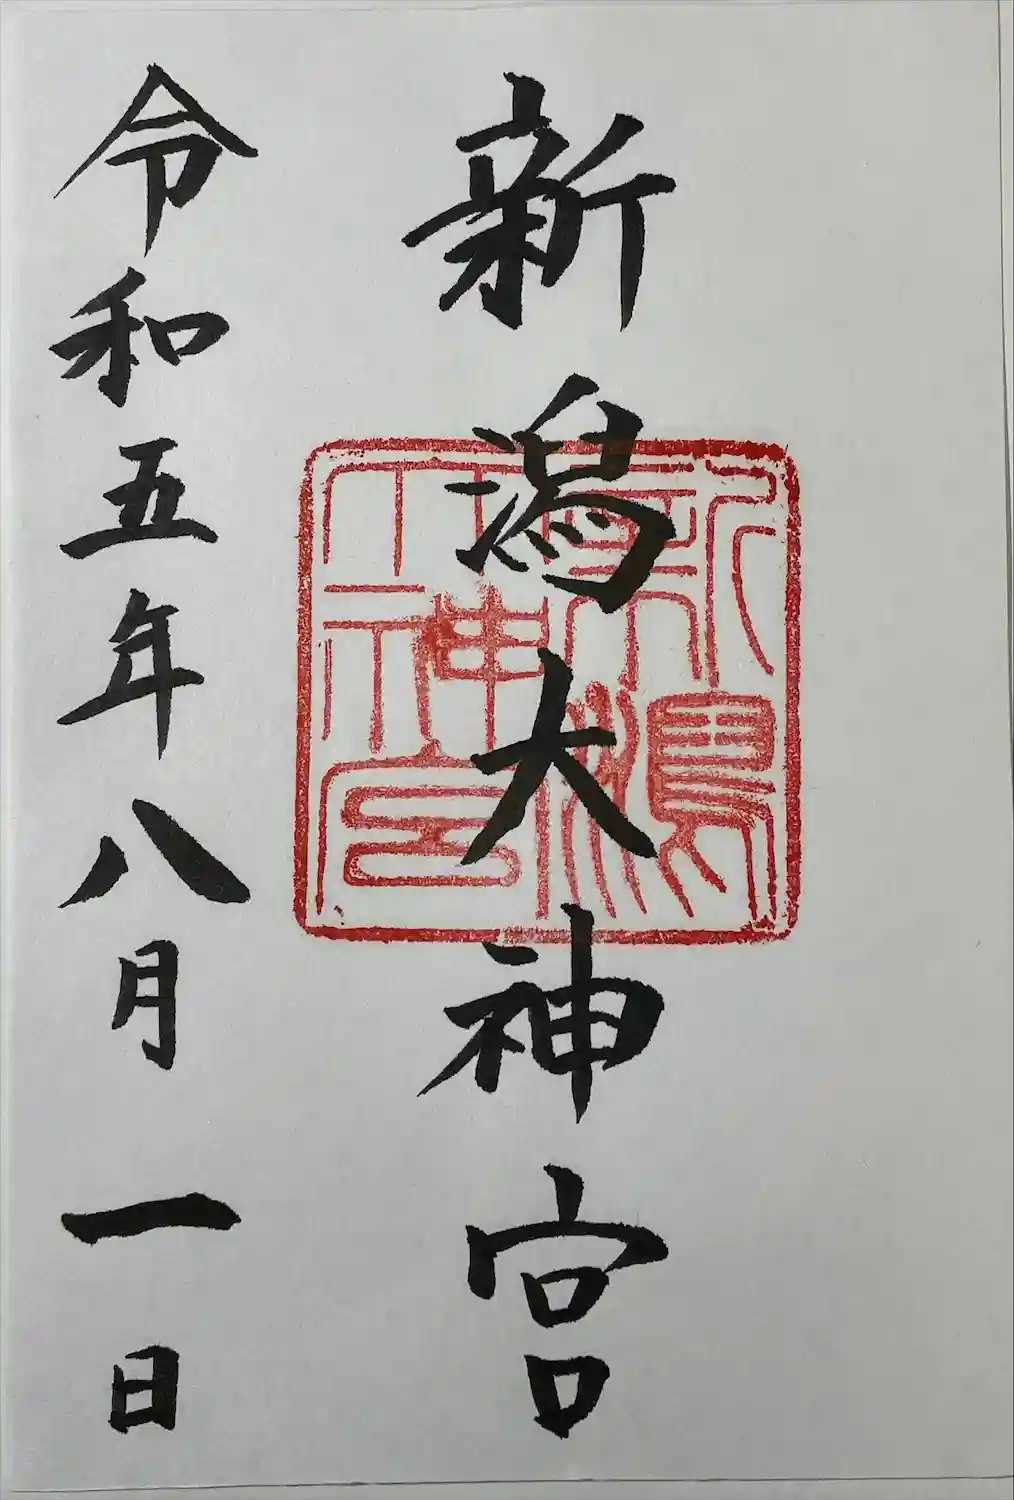 新潟大神宮
新潟大神宮
令和五年八月一日